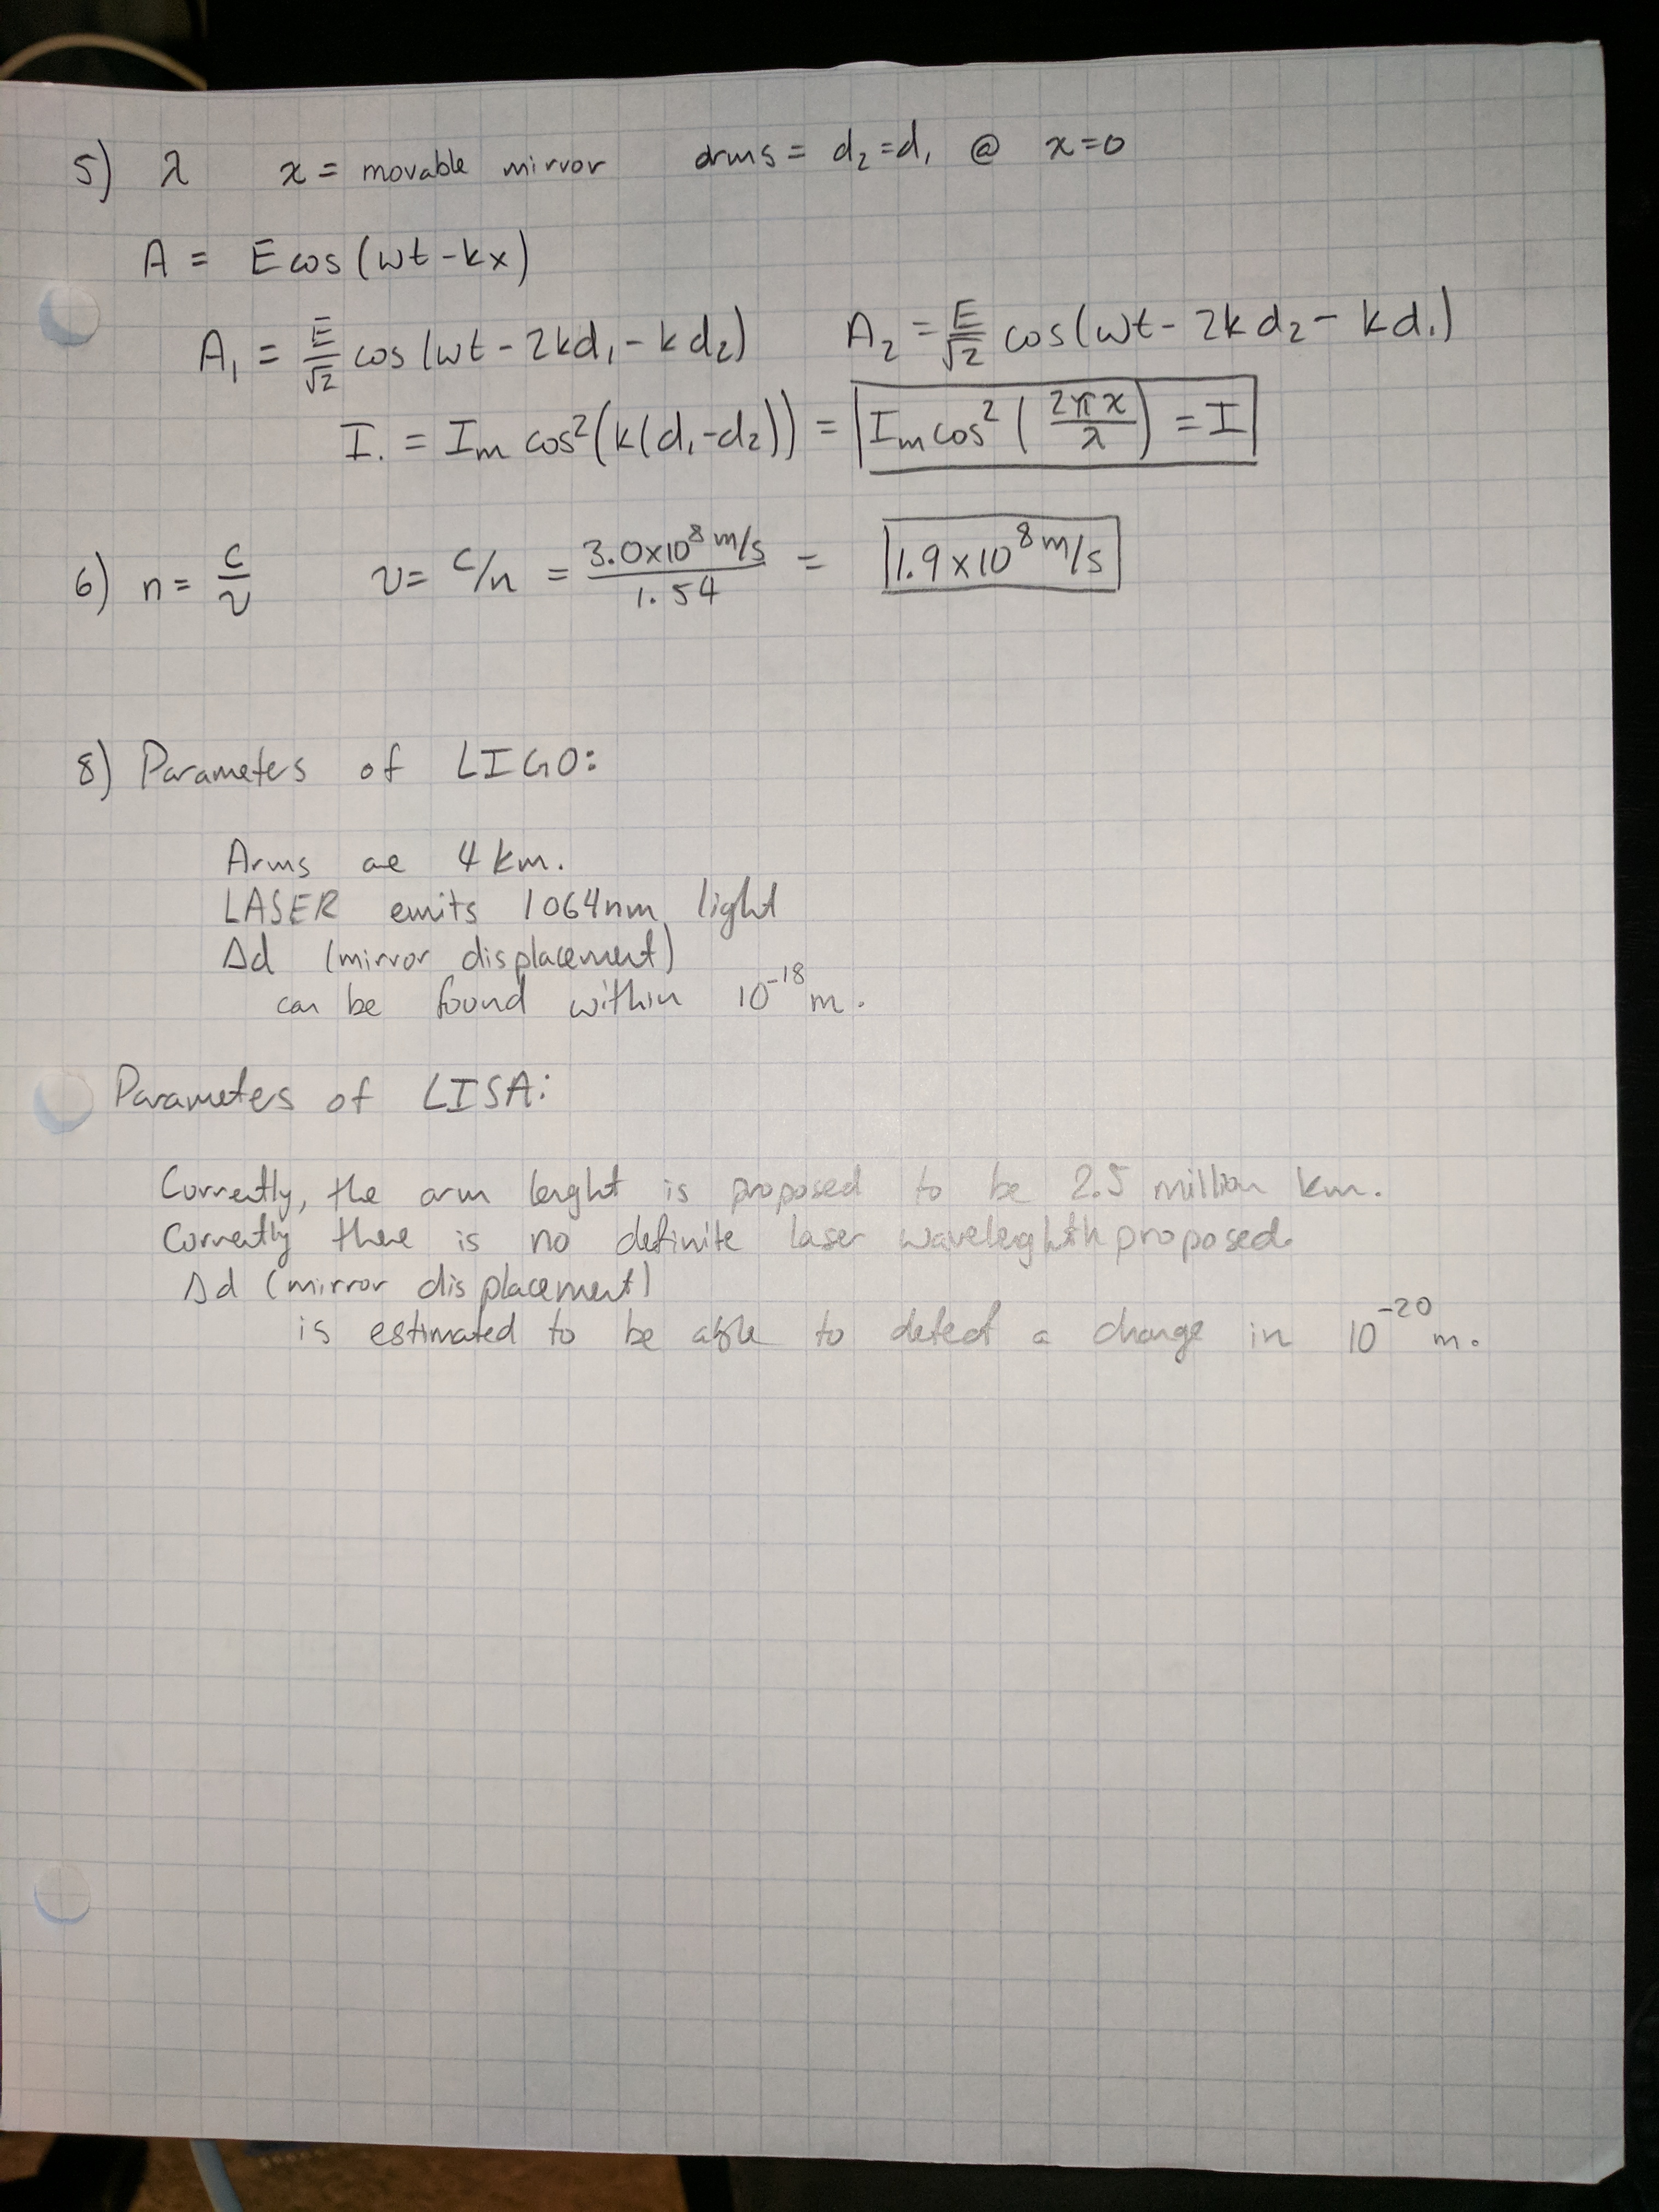 5) λ x = movable mirror arms = d₂=d₁ @ x=0
A = E cos(ωt - kx)
A₁ = E/√2 cos(ωt - 2kd₁ - kd₂) A₂ = E/√2 cos(ωt - 2kd₂ - kd₁)
I. = Iₘ cos²(k(d₁-d₂)) = Iₘ cos²(2πx/λ) = I
6) n = c/v v = c/n = 3.0x10⁸ m/s / 1.54 = 1.9 x 10⁸ m/s
8) Parameters of LIGO:
Arms are 4 km.
LASER emits 1064nm light
Δd (mirror displacement)
can be found within 10⁻¹⁸ m.
Parameters of LISA:
Currently, the arm lenght is proposed to be 2.5 million km.
Currently there is no definite laser wavelenghth proposed.
Δd (mirror displacement)
is estimated to be able to detect a change in 10⁻²⁰ m.